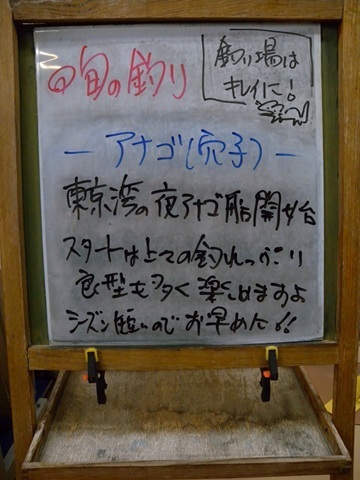 旬の釣り
釣り場は
キレイに!
ーアナゴ(穴子)ー
東京湾の夜アナゴ船開始
スタートは上々の釣れっぷり
良型も多く楽しめますよ
シーズン短いのでお早めに!!